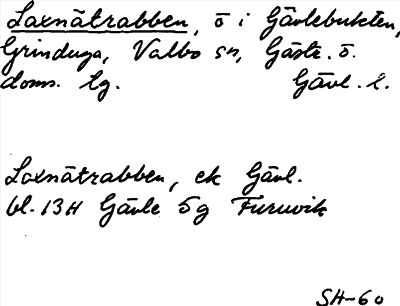 Laxnätrabben, ö i Gävlebukten,
Grinduga, Valbo sn, Gästr. ö.
doms. lg. Gävl. l.
Laxnätrabben, ek Gävl.
bl. 13H Gävle 5g Furuvik
SH-60